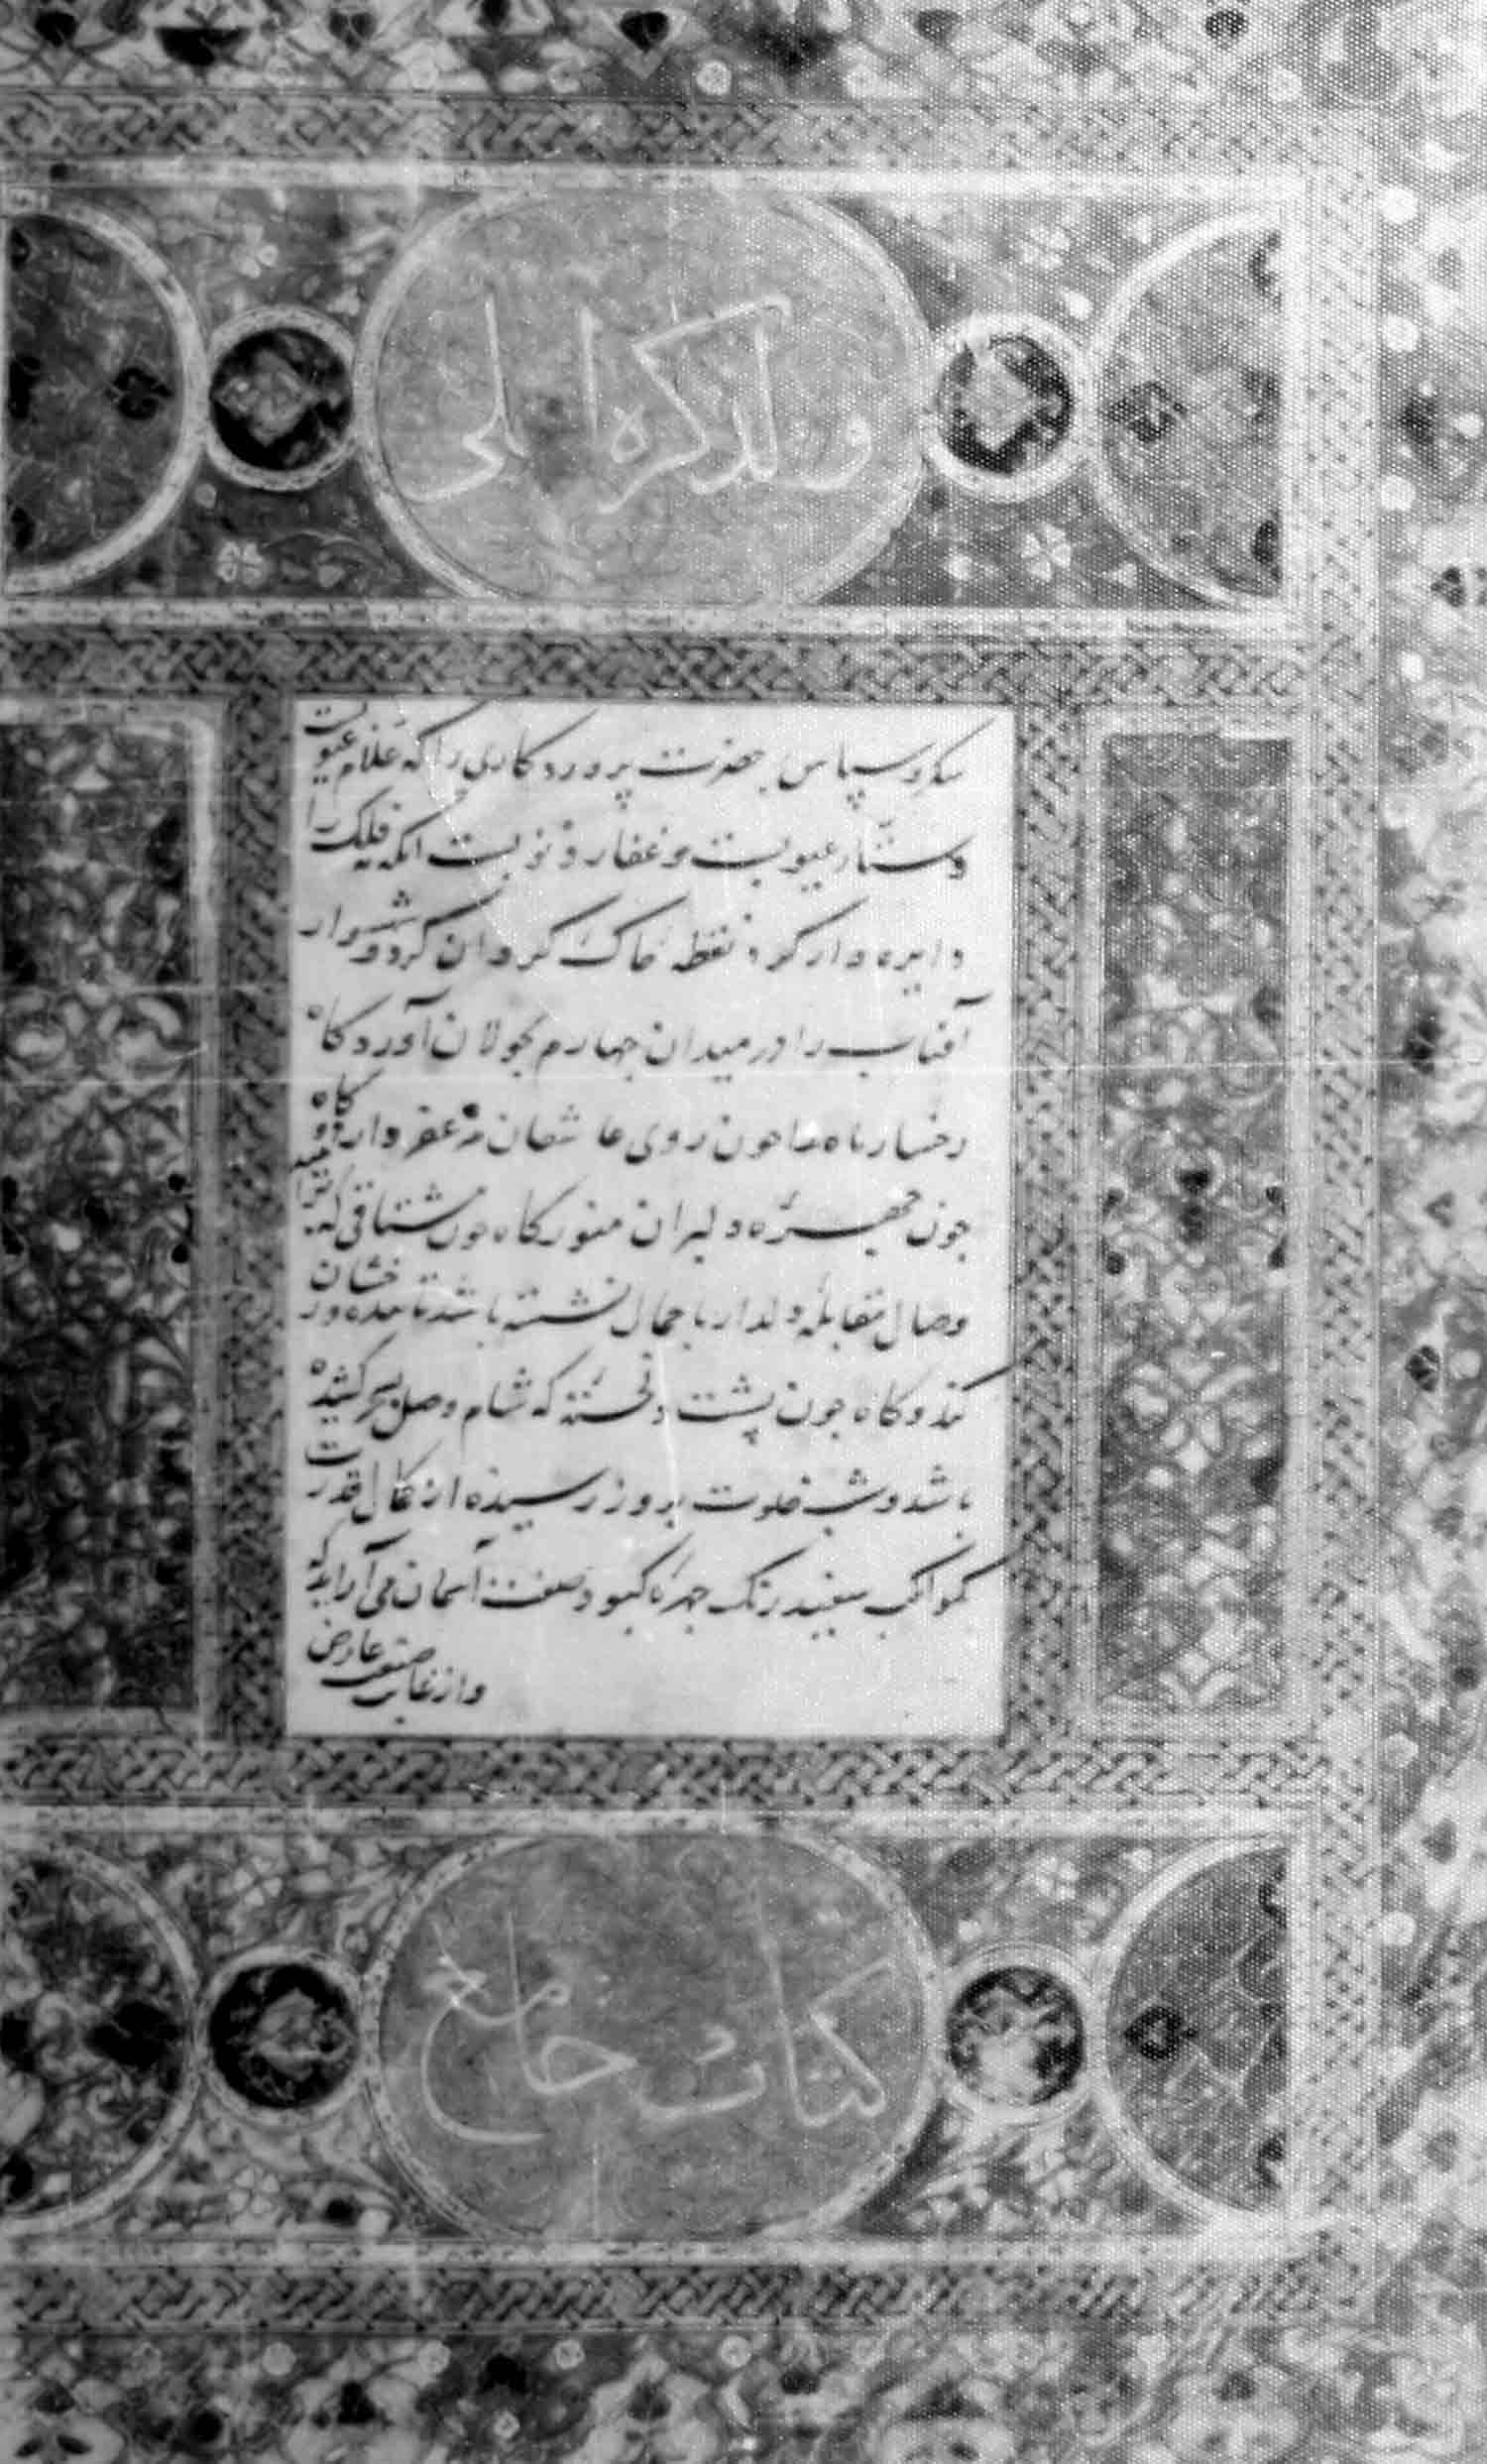 و لذکره اعلی
شکر و سپاس حضرت پروردکاری را که علام غیوبست
و ستار عیوبست و غفار ذنوبست آنکه فلک را
دایره وار کرد نقطه خاک کردان کرد و شهسوار
آفتاب را در میدان چهارم بجولان آورد کاه
رخسار ماه را چون روی عاشقان مزعفر دارد و کاه
چون چهره دلبران منور کاه چون مشتاقی که
وصال مقابله دلدار با جمال نشسته باشد تابنده و رخشان
کند و کاه چون پشت دلخسته که شام وصل بسحر کشیده
باشد و شب خلوت بروز رسیده از کمال قدرت
کواکب سفید رنک چهره کبود صفت آسمان می آراید که
و از غایت صنعت عارض
کتاب جامع